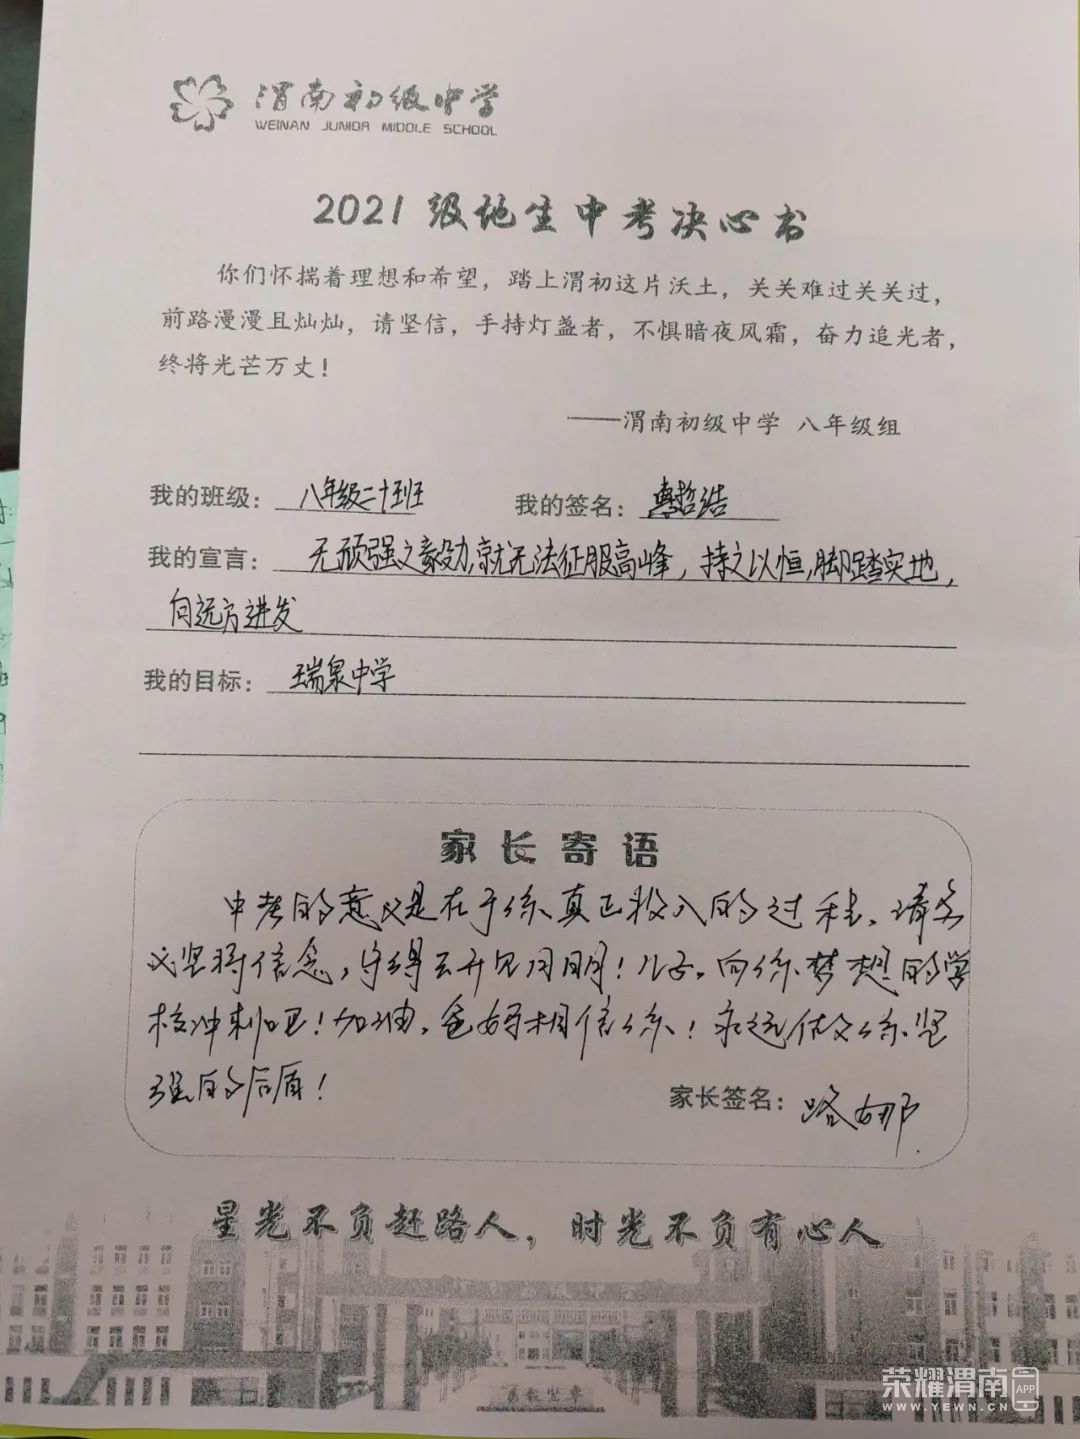 渭南初级中学
WEINAN JUNIOR MIDDLE SCHOOL
2021级地生中考决心书
你们怀揣着理想和希望，踏上渭初这片沃土，关关难过关关过，
前路漫漫且灿灿，请坚信，手持灯盏者，不惧暗夜风霜，奋力追光者，
终将光芒万丈！
——渭南初级中学 八年级组
我的班级：八年级二十五班 我的签名：哲浩
我的宣言：无顽强之毅力，就无法征服高峰，持之以恒，脚踏实地，
向远方进发
我的目标：瑞泉中学
家长寄语
中考的意义是在于你真正投入的过程。请务
必坚持信念，守得云开见月明！儿子，向你梦想的学
校冲刺吧！加油，爸妈相信你！永远做你坚
强的后盾！
家长签名：路娜
星光不负赶路人，时光不负有心人
荣耀渭南 APP
WWW.YEWN.CN